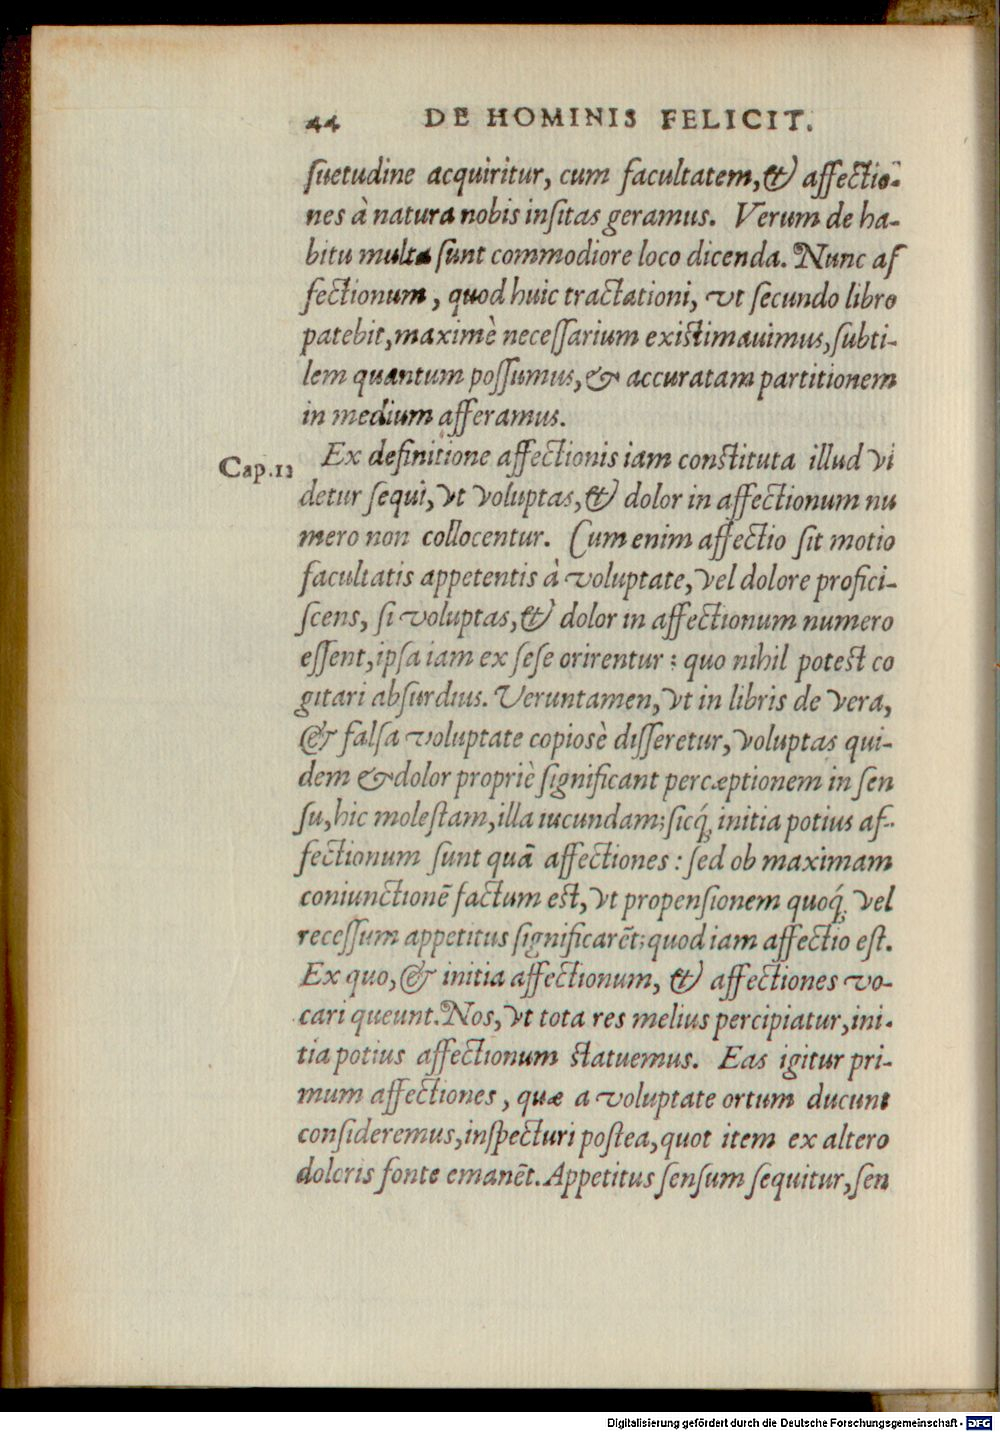 44 DE HOMINIS FELICIT.
ſuetudine acquiritur, cum facultatem, & affectio-
nes à natura nobis inſitas geramus. Verum de ha-
bitu multa ſunt commodiore loco dicenda. Nunc af
fectionum, quod huic tractationi, vt ſecundo libro
patebit, maximè neceſſarium existimauimus, ſubti-
lem quantum poſſumus, & accuratam partitionem
in medium afferamus.
Cap. 12 Ex definitione affectionis iam constituta illud vi
detur ſequi, vt voluptas, & dolor in affectionum nu
mero non collocentur. Cum enim affectio ſit motio
facultatis appetentis à voluptate, vel dolore profici-
ſcens, ſi voluptas, & dolor in affectionum numero
eſſent, ipſa iam ex ſeſe orirentur: quo nihil potest co
gitari abſurdius. Veruntamen, vt in libris de vera,
& falſa voluptate copiosè diſſeretur, voluptas qui-
dem & dolor propriè ſignificant percæptionem in ſen
ſu, hic moleſtam, illa iucundam; ſicq́; initia potius af-
fectionum ſunt quā affectiones: ſed ob maximam
coniunctionē factum est, vt propenſionem quoq́; vel
receſſum appetitus ſignificarēt; quod iam affectio eſt.
Ex quo, & initia affectionum, & affectiones vo-
cari queunt. Nos, vt tota res melius percipiatur, ini-
tia potius affectionum statuemus. Eas igitur pri-
mum affectiones, quæ a voluptate ortum ducunt
conſideremus, inſpecturi poſtea, quot item ex altero
doloris fonte emanēt. Appetitus ſenſum ſequitur, ſen
Digitalisierung gefördert durch die Deutsche Forschungsgemeinschaft - DFG